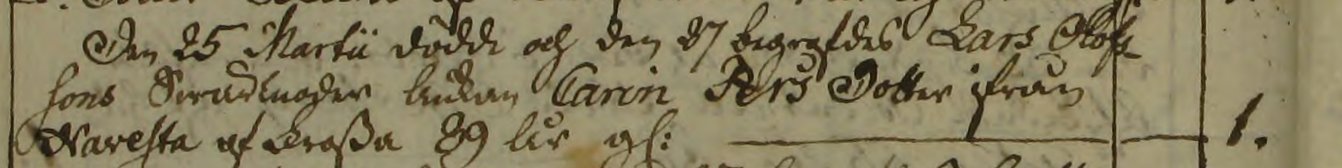 Den 25 Martii dödde och den 27 begrafdes Lars Olofs
sons Swärmoder änkan Carin Pers Dotter ifrån
Navesta af Krossa 89 åhr gl: 1.